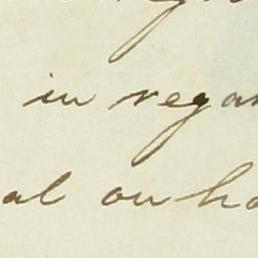 in regar
al on ha